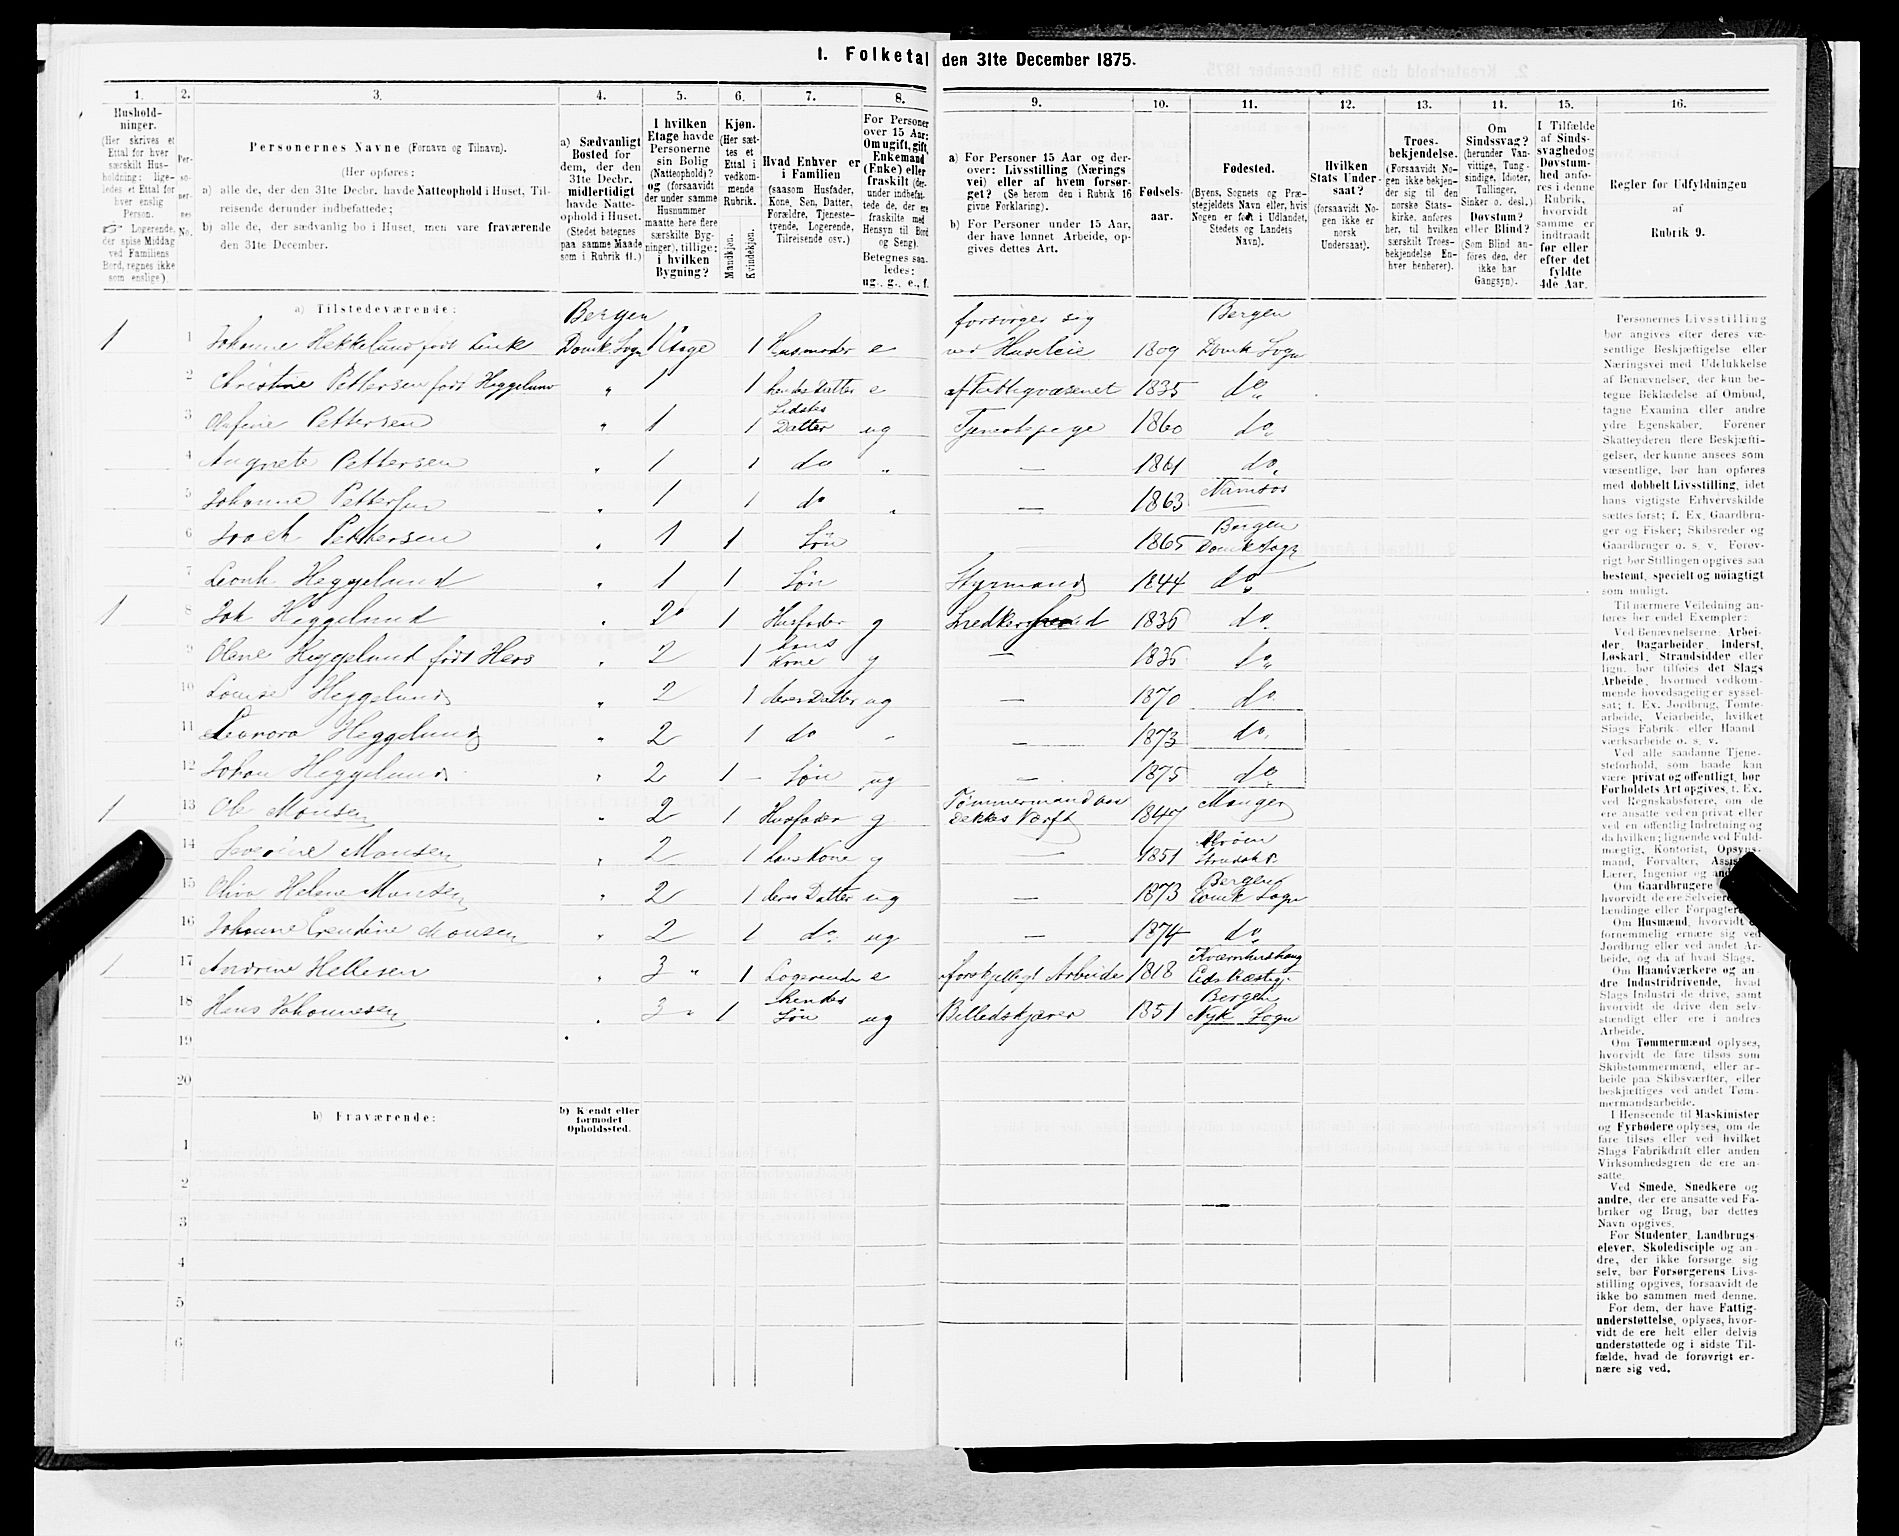 1. Folketal den 31te December 1875.
1. 2. 3. 4. 5. 6. 7. 8. 9. 10. 11. 12. 13. 14. 15. 16.
Hushold-
ninger.
(Her skrives et
Ettal for hver
særskilt Hus-
holdning; lige-
ledes et Ettal for
hver enslig
Person.
☞ Logerende,
der spise Middag
ved Familiens
Bord, regnes ikke
som enslige).
Per-
so-
ner-
nes
No.
Personernes Navne (Fornavn og Tilnavn).
(Her opføres:
a) alle de, der den 31te Decbr. havde Natteophold i Huset, Til-
reisende derunder indbefattede;
b) alle de, der sædvanlig bo i Huset, men vare fraværende
den 31te December.
a) Sædvanligt
Bosted for
dem, der den
31te Decbr.
midlertidigt
havde Natte-
ophold i Huset.
(Stedet betegnes
paa samme Maade
som i Rubrik 11.)
I hvilken
Etage havde
Personerne
sin Bolig
(Natteophold)?
og (forsaavidt
der under samme
Husnummer
maatte høre flere
særskilte Byg-
ninger), tillige:
i hvilken
Bygning?
Kjøn.
(Her sæt-
tes et
Ettal i
vedkom-
mende
Rubrik.
Mandkjøn.
Kvindekjøn.
Hvad Enhver er
i Familien
(saasom Husfader,
Kone, Søn, Datter,
Forældre, Tjeneste-
tyende, Logerende,
Tilreisende osv.)
For Personer
over 15 Aar:
Om ugift, gift,
Enkemand
(Enke) eller
fraskilt (der-
under indbefat-
tede de, der ere
fraskilte med
Hensyn til Bord
og Seng).
Betegnes saa-
ledes:
ug., g., e., f.
a) For Personer 15 Aar og der-
over: Livsstilling (Nærings
vei) eller af hvem forsør-
get? (Se herom den i Rubrik 16
givne Forklaring).
b) For Personer under 15 Aar,
der have lønnet Arbeide, op-
gives dettes Art.
Fødsels-
aar.
Fødested.
(Byens, Sognets og Præ-
stegjeldets Navn eller, hvis
Nogen er født i Udlandet,
Stedets og Landets
Navn).
Hvilken
Stats Under-
saat?
(forsaavidt No-
gen ikke er
norsk
Undersaat).
Troes-
bekjendelse.
(Forsaavidt No-
gen ikke bekjen-
der sig til den
norske Stats-
kirke, anføres
her, til hvilken
særskilt Troes-
bekjendelse En-
hver henhører).
Om
Sindssvag?
(herunder Van-
vittige, Tung-
sindige, Idioter,
Tullinger,
Sinker o. desl.)
Døvstum?
eller Blind?
(Som Blind an-
føres den, der
ikke har
Gangsyn).
I Tilfælde
af Sinds-
svaghed og
Døvstum-
hed anfø-
res i denne
Rubrik,
hvorvidt
samme er
indtraadt
før eller
efter det
fyldte
4de Aar.
Regler for Udfyldningen
af
Rubrik 9.
a) Tilstedeværende:
Bergen forsørger sig Bergen
1 1 Johanne Hekkelund født Domk Sogn 1 Etage 1 Husmoder e ved Huseleie 1809 Domk Sogn
2 Christine Pettersen født Heggelund " 1 1 hendes Datter e af Fattigvæsenet 1835 do
3 Olufine Pettersen " 1 1 Sidstes Datter ug Tjenestepige 1860 do
4 Augnete Pettersen " 1 1 do " — 1861 do
5 Johanne Pettersen " 1 1 do " — 1863 Namsos
6 Pettersen " 1 1 Søn — 1865 Bergen Domk Sogn
7 Heggelund " 1 1 Søn Styrmand 1844 do
1 8 Joh Heggelund " 2 1 Husfader g Snedkersvend 1836 do
9 Olene Heggelund født Hers " 2 1 hans Kone g — 1836 do
10 Louise Heggelund " 2 1 deres Datter ug — 1870 do
11 Leonora Heggelund " 2 1 do " — 1873 do
12 Johan Heggelund " 2 1 — Søn ug — 1875 do
1 13 Ole Monsen " 2 1 Husfader g Tømmermand paa Dekkes Værft 1847 Manger
14 Severine Monsen " 2 1 hans Kone g — 1851
15 Oliva Helene Monsen " 2 1 deres Datter ug — 1873 Bergen Domk Sogn
16 Johanne Monsen " 2 1 do ug — 1874 do
1 17 Andrine Hellesen " 3 " 1 Logerende e forskjelligt Arbeide 1818
18 Hans Johannesen " 3 " 1 hendes Søn ug Billedskjærer 1851 Bergen Nyk Sogn
19
20
b) Fraværende:
b) Kjendt eller
formodet
Opholdssted.
1
2
3
4
5
6
Personernes Livsstilling
bør angives efter deres væ-
sentlige Beskjæftigelse eller
Næringsvei med Udelukkelse
af Benævnelser, der kun be-
tegne Beklædelse af Ombud,
tagne Examina eller andre
ydre Egenskaber. Forener
Skatteyderen flere Beskjæfti-
gelser, der kunne ansees som
væsentlige, bør han opføres
med dobbelt Livsstilling, idet
hans vigtigste Erhvervskilde
sættes først; f. Ex. Gaardbru-
ger og Fisker; Skibsreder og
Gaardbruger o. s. v. Forøv-
rigt bør Stillingen opgives saa
bestemt, specielt og nøiagtigt
som muligt.
Til nærmere Veiledning an-
føres her endel Exempler:
Ved Benævnelserne: Arbei-
der, Dagarbeider, Inderst,
Løskarl, Strandsidder eller
lign. bør tilføies det Slags
Arbeide, hvormed vedkom-
mende hovedsagelig er syssel-
sat; f. Ex. Jordbrug, Tomte-
arbeide, Veiarbeide, hvilket
Slags Fabrik- eller Haand-
værksarbeide o. s. v.
Ved alle saadanne Tjene-
steforhold, som baade kan
være privat og offentligt, bør
Forholdets Art opgives, t. Ex.
ved Regnskabsførere, om de
ere ansatte ved en privat eller
ved en offentlig Indretning og
da hvilken; lignende ved Fuld-
mægtig, Kontorist, Opsyns-
mand, Forvalter,
Lærer, Ingeniør og
Om Gaardbrugere
hvorvidt de ere Selveiere,
lændinge eller Forpagtere.
Om Husmænd, hvorvidt
fornemmelig ernære sig ved
Jordbrug eller ved andet Ar-
beide, og da af hvad Slags.
Om Haandværkere og an-
dre Industridrivende, hvad
Slags Industri de drive, samt
hvorvidt de drive den selv-
stændigt eller ere i andres
Arbeide.
Om Tømmermænd oplyses,
hvorvidt de fare tilsøs som
Skibstømmermænd, eller ar-
beide paa Skibsværfter, eller
beskjæftiges ved andet Tøm-
mermandsarbeide.
I Henseende til Maskinister
og Fyrbødere oplyses, om de
fare tilsøs eller ved hvilket
Slags Fabrikdrift eller anden
Virksomhedsgren de ere an-
satte.
Ved Smede, Snedkere og
andre, der ere ansatte ved Fa-
briker og Brug, bør dettes
Navn opgives.
For Studenter, Landbrugs-
elever, Skoledisciple og an-
dre, der ikke forsørge sig
selv, bør Forsørgerens Livs-
stilling opgives, forsaavidt de
ikke bo sammen med denne.
For dem, der have Fattig-
understøttelse, oplyses, hvor-
vidt de ere helt eller delvis
understøttede og i sidste Til-
fælde, hvad de forøvrigt er-
nære sig ved.